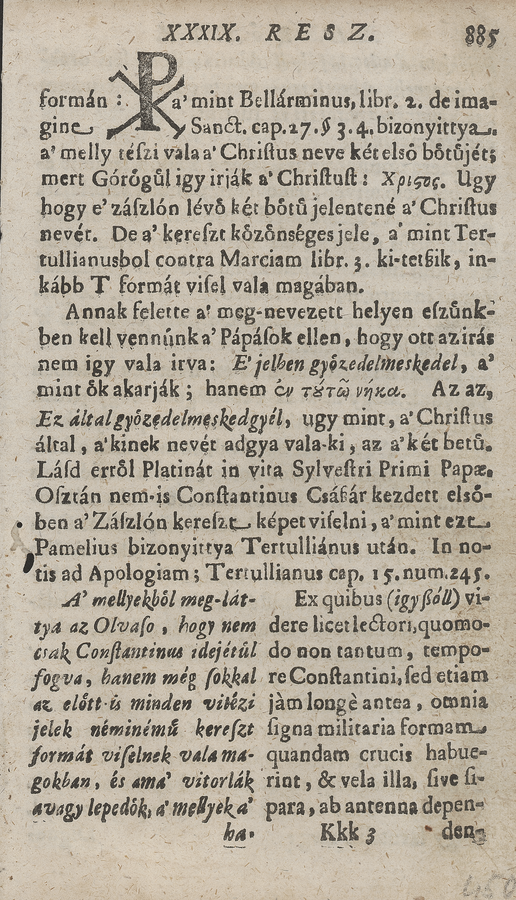 XXXIX. RESZ. 885
formán : ☧ a' mint Bellárminus, libr. 2. de ima-
gine Sanct. cap. 27. § 3. 4. bizonyittya.
a' melly tészi vala a' Chriſtus neve két elsõ bõtûjét;
mert Gõrõgûl igy irják a' Chriſtuſt: Χριςος. Ugy
hogy e' záſzlón lévõ két bõtû jelentené a' Chriſtus
nevét. De a' kereſzt kõzõnséges jele, a' mint Ter-
tullianusbol contra Marciam libr. 3. ki-tetßik, in-
kább T formát viſel vala magában.
Annak felette a' meg-nevezett helyen eſzûnk-
ben kell vennûnk a' Pápáſok ellen, hogy ott az irás
nem igy vala irva: E' jelben gyõzedelmeskedel, a'
mint õk akarják; hanem ἐν τȣ́τῳ νήκα. Az az,
Ez által gyõzedelmeskedgyél, ugy mint, a' Chriſtus
által, a' kinek nevét adgya vala-ki, az a' két betû.
Láſd errõl Platinát in vita Sylveſtri Primi Papæ.
Oſztán nem-is Conſtantinus Csáßár kezdett elsõ-
ben a' Záſzlón kereſzt képet viſelni, a' mint ezt
Pamelius bizonyittya Tertulliánus után. In no-
tis ad Apologiam; Tertullianus cap. 15. num. 245.
A' mellyekbõl meg-lát-
tya az Olvaſo, hogy nem
csak Conſtantinus idejétûl
fogva, hanem még ſokkal
az elõtt-is minden vitézi
jelek néminémû kereſzt
formát viſelnek vala ma-
gokban, és ama' vitorlák
avagy lepedõk, a' mellyek a'
ha-
Ex quibus (igy ßóll) vi-
dere licet lectori, quomo-
do non tantum, tempo-
re Conſtantini, ſed etiam
jàm longè antea, omnia
ſigna militaria formam
quandam crucis habue-
rint, & vela illa, ſive ſi-
para, ab antenna depen-
Kkk 3 den-